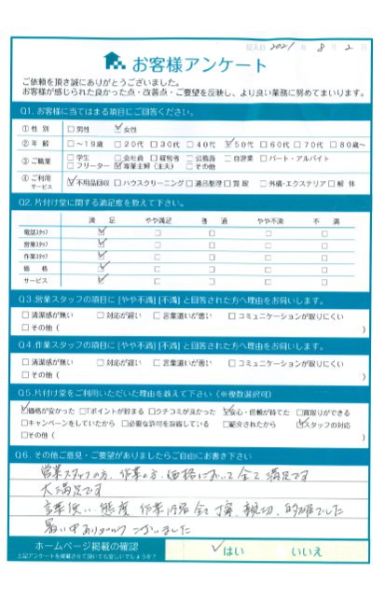 記入日 2021年 8月 2日
お客様アンケート
ご依頼を頂き誠にありがとうございました。
お客様が感じられた良かった点・改善点・ご要望を反映し、より良い業務に努めてまいります。
Q1. お客様に当てはまる項目にご回答ください。
① 性 別 □ 男性 ☑ 女性
② 年 齢 □ ～19歳 □ 20代 □ 30代 □ 40代 ☑ 50代 □ 60代 □ 70代 □ 80歳～
③ ご職業 □ 学生 □ 会社員 □ 経営者 □ 公務員 □ 自営業 □ パート・アルバイト
□ フリーター ☑ 専業主婦（主夫） □ その他
④ ご利用サービス ☑ 不用品回収 □ ハウスクリーニング □ 遺品整理 □ 買取 □ 外構・エクステリア □ 解体
Q2. 片付け堂に関する満足度を教えて下さい。
満 足 やや満足 普 通 やや不満 不 満
電話スタッフ ☑ □ □ □ □
営業スタッフ ☑ □ □ □ □
作業スタッフ ☑ □ □ □ □
価 格 ☑ □ □ □ □
サービス ☑ □ □ □ □
Q3. 営業スタッフの項目に [やや不満] [不満] と回答された方へ理由をお伺いします。
□ 清潔感が無い □ 対応が遅い □ 言葉遣いが悪い □ コミュニケーションが取りにくい
□ その他 ( )
Q4. 作業スタッフの項目に [やや不満] [不満] と回答された方へ理由をお伺いします。
□ 清潔感が無い □ 対応が遅い □ 言葉遣いが悪い □ コミュニケーションが取りにくい
□ その他 ( )
Q5. 片付け堂をご利用いただいた理由を教えて下さい（※複数選択可）
☑ 価格が安かった □ ポイントが貯まる □ クチコミが良かった ☑ 安心・信頼が持てた □ 買取りができる
□ キャンペーンをしていたから □ 必要な許可を取得している □ 紹介されたから ☑ スタッフの対応
□ その他 ( )
Q6. その他ご意見・ご要望がありましたらご自由にお書き下さい
営業スタッフの方、作業の方、価格において全て満足です
大満足です
言葉使い、態度 作業内容 全て丁寧、親切、的確でした
暑い中ありがとうございました
ホームページ掲載の確認 ☑ はい いいえ
上記アンケートを掲載させて頂いても宜しいでしょうか？